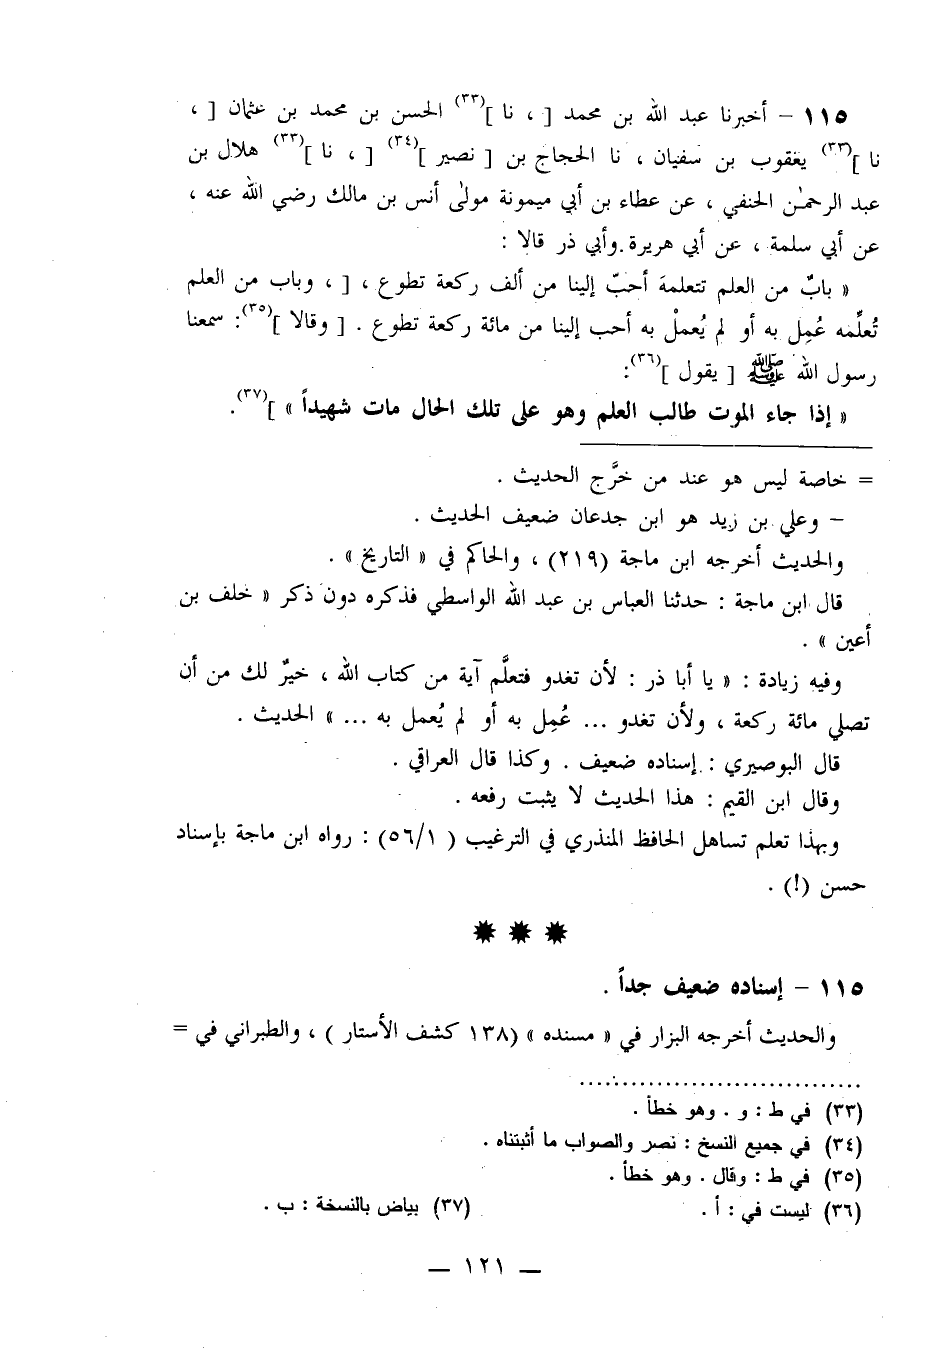 ١١٥ – أخبرنا عبد الله بن محمد [ ، نا ](٣٣) الحسن بن محمد بن عثمان [ ،
نا ](٣٣) يعقوب بن سفيان ، نا الحجاج بن [ نصير ](٣٤) [ ، نا ](٣٣) هلال بن
عبد الرحمٰن الحنفي ، عن عطاء بن أبي ميمونة مولىٰ أنس بن مالك رضي الله عنه ،
عن أبي سلمة ، عن أبي هريرة وأبي ذر قالا :
« بابٌ من العلم تتعلمه أحبّ إلينا من ألف ركعة تطوع ، [ ، وباب من العلم
تُعلِّمه عُمِل به أو لم يُعملْ به أحب إلينا من مائة ركعة تطوع . [ وقالا ](٣٥): سمعنا
رسول الله ﷺ [ يقول ](٣٦):
« إذا جاء الموت طالب العلم وهو على تلك الحال مات شهيداً » ](٣٧).
= خاصة ليس هو عند من خرَّج الحديث .
– وعلي بن زيد هو ابن جدعان ضعيف الحديث .
والحديث أخرجه ابن ماجة (٢١٩) ، والحاكم في « التاريخ » .
قال ابن ماجة : حدثنا العباس بن عبد الله الواسطي فذكره دون ذكر « خلف بن
أعين » .
وفيه زيادة : « يا أبا ذر : لأن تغدو فتعلَّم آية من كتاب الله ، خيرٌ لك من أن
تصلي مائة ركعة ، ولأن تغدو ... عُمِل به أو لم يُعمل به ... » الحديث .
قال البوصيري : إسناده ضعيف . وكذا قال العراقي .
وقال ابن القيم : هذا الحديث لا يثبت رفعه .
وبهذا تعلم تساهل الحافظ المنذري في الترغيب ( ٥٦/١) : رواه ابن ماجة بإسناد
حسن (!) .
✹ ✹ ✹
١١٥ – إسناده ضعيف جداً .
والحديث أخرجه البزار في « مسنده » (١٣٨ كشف الأستار ) ، والطبراني في =
(٣٣) في ط : و . وهو خطأ .
(٣٤) في جميع النسخ : نصر والصواب ما أثبتناه .
(٣٥) في ط : وقال . وهو خطأ .
(٣٦) ليست في : أ . (٣٧) بياض بالنسخة : ب .
— ١٢١ —